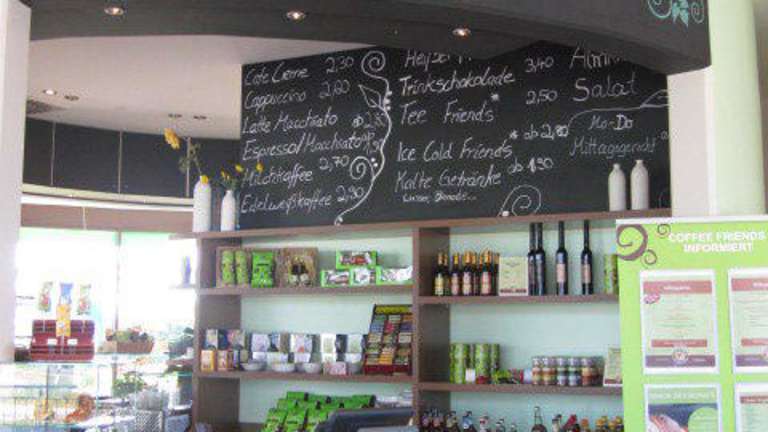 Cafe Creme 2,30
Cappuccino 2,60
Latte Macchiato ab 2,80
Espresso/Macchiato ab 1,90
Milchkaffee 2,70
Edelweißkaffee 2,90
Trinkschokolade 3,40
Tee Friends* 2,50
Ice Cold Friends* ab 2,80
Kalte Getränke ab 1,90
Salat
Mo-Do
Mittagsgericht
COFFEE FRIENDS
INFORMIERT